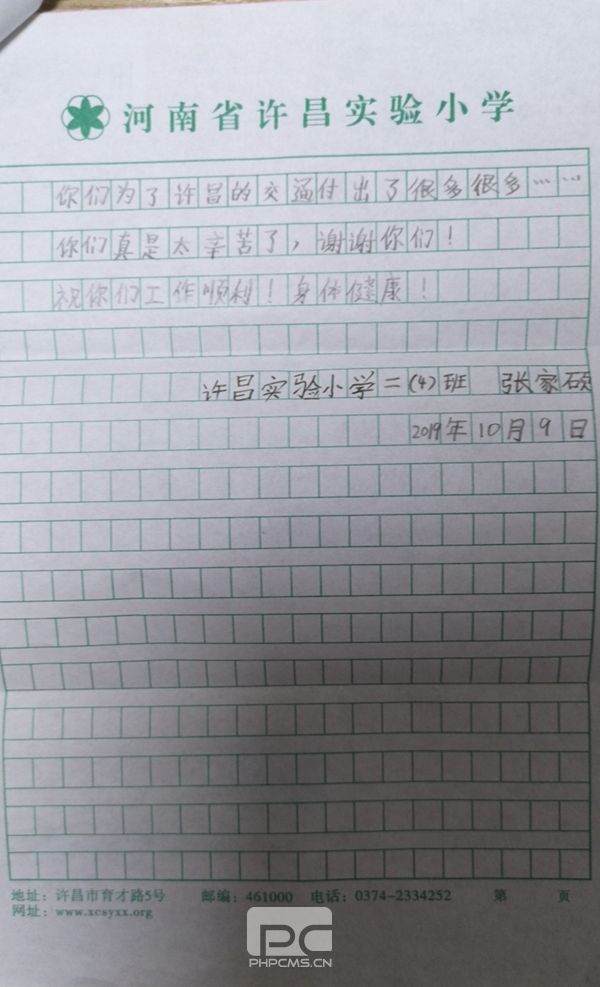 河南省许昌实验小学
你们为了许昌的交通付出了很多很多……
你们真是太辛苦了，谢谢你们！
祝你们工作顺利！身体健康！
许昌实验小学二（4）班 张家硕
2019年10月9日
地址：许昌市育才路5号 邮编：461000 电话：0374-2334252 第 页
网址：www.xcsyxx.org
PC
PHPCMS.CN